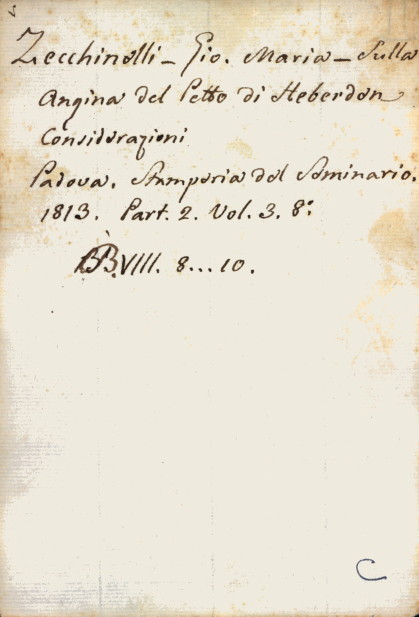 Zecchinelli – Gio. Maria – Sulla
Angina del Petto di Heberden
Considerazioni
Padova. Stamperia del Seminario.
1813. Part. 2. Vol. 3. 8º
BB.VIII. 8...10.
C